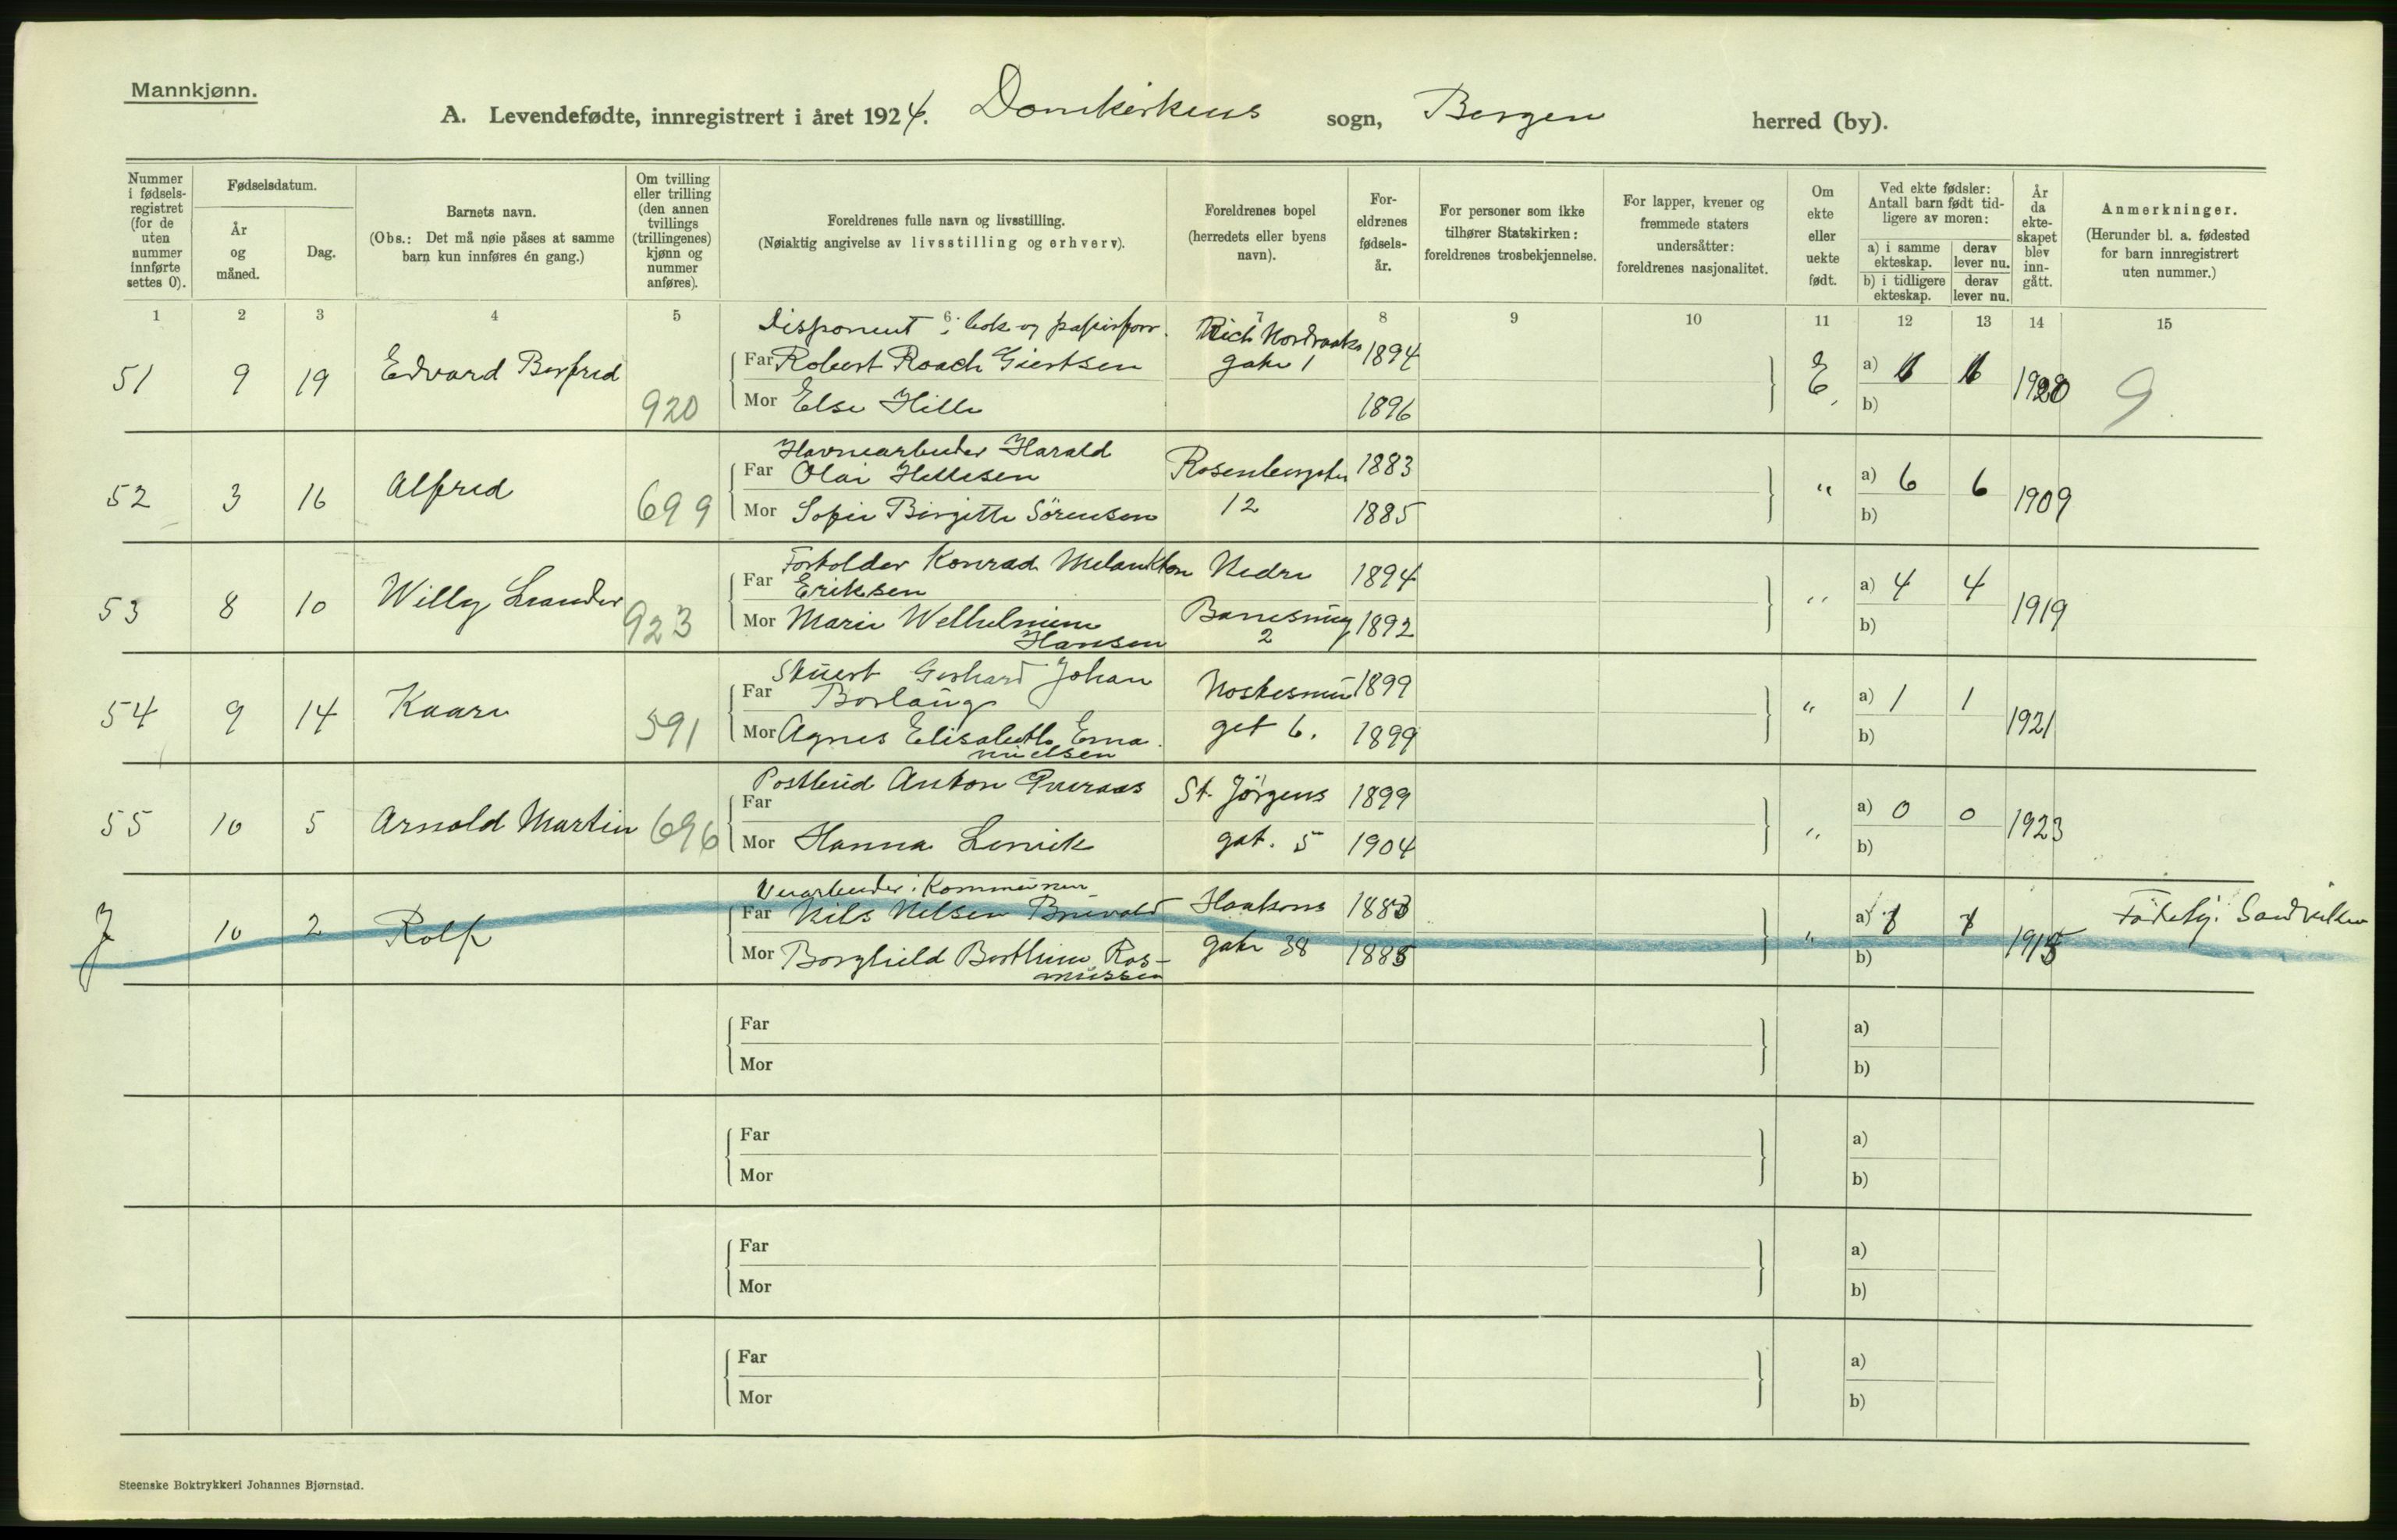 Mannkjønn.
A. Levendefødte, innregistrert i året 1924. Domkirkens sogn, Bergen herred (by).
Nummer i fødsels-registret (for de uten nummer innførte settes 0).
Fødselsdatum.
År og måned.
Dag.
Barnets navn.
(Obs.: Det må nøie påses at samme barn kun innføres én gang.)
Om tvilling eller trilling (den annen tvillings (trillingenes) kjønn og nummer anføres).
Foreldrenes fulle navn og livsstilling.
(Nøiaktig angivelse av livsstilling og erhverv).
Foreldrenes bopel (herredets eller byens navn).
For-eldrenes fødsels-år.
For personer som ikke tilhører Statskirken: foreldrenes trosbekjennelse.
For lapper, kvener og fremmede staters undersåtter: foreldrenes nasjonalitet.
Om ekte eller uekte født.
Ved ekte fødsler: Antall barn født tid-ligere av moren:
a) i samme ekteskap.
derav lever nu.
b) i tidligere ekteskap.
derav lever nu.
År da ekte-skapet blev inn-gått.
Anmerkninger.
(Herunder bl. a. fødested for barn innregistrert uten nummer.)
1 2 3 4 5 6 7 8 9 10 11 12 13 14 15
Disponent i bok og papirforr. Rich Nordraaks
51 9 19 Edvard Berfred Far Robert Roach Giertsen gate 1 1894 E. a) 1 1 1920 9
920 Mor Else Hille 1896 b)
Havnearbeider Harald
52 3 16 Alfred Far Olai Hellesen Rosenbergsgtn 1883 " a) 6 6 1909
699 Mor Sofie Birgitte Sörensen 12 1885 b)
Forholder Konrad Melankton
53 8 10 Willy Leander Far Eriksen Nedre 1894 " a) 4 4 1919
923 Mor Marie Welhelmine Hansen 2 1892 b)
Gerhard Johan
54 9 14 Kaare Far 1899 " a) 1 1 1921
591 Mor Agnes Elisabeth Emanuelsen gt 6. 1899 b)
Postbud Anton
55 10 5 Arnold Martin Far St. Jörgens 1899 " a) 0 0 1923
696 Mor Hanna gat. 5 1904 b)
i Kommunen
J 10 2 Rolf Far Nils Nilsen Haakons 1883 " a) 1915
Mor Borghild Berthine Rasmussen gate 38 1885 b)
Far a)
Mor b)
Far a)
Mor b)
Far a)
Mor b)
Far a)
Mor b)
Steenske Boktrykkeri Johannes Bjørnstad.